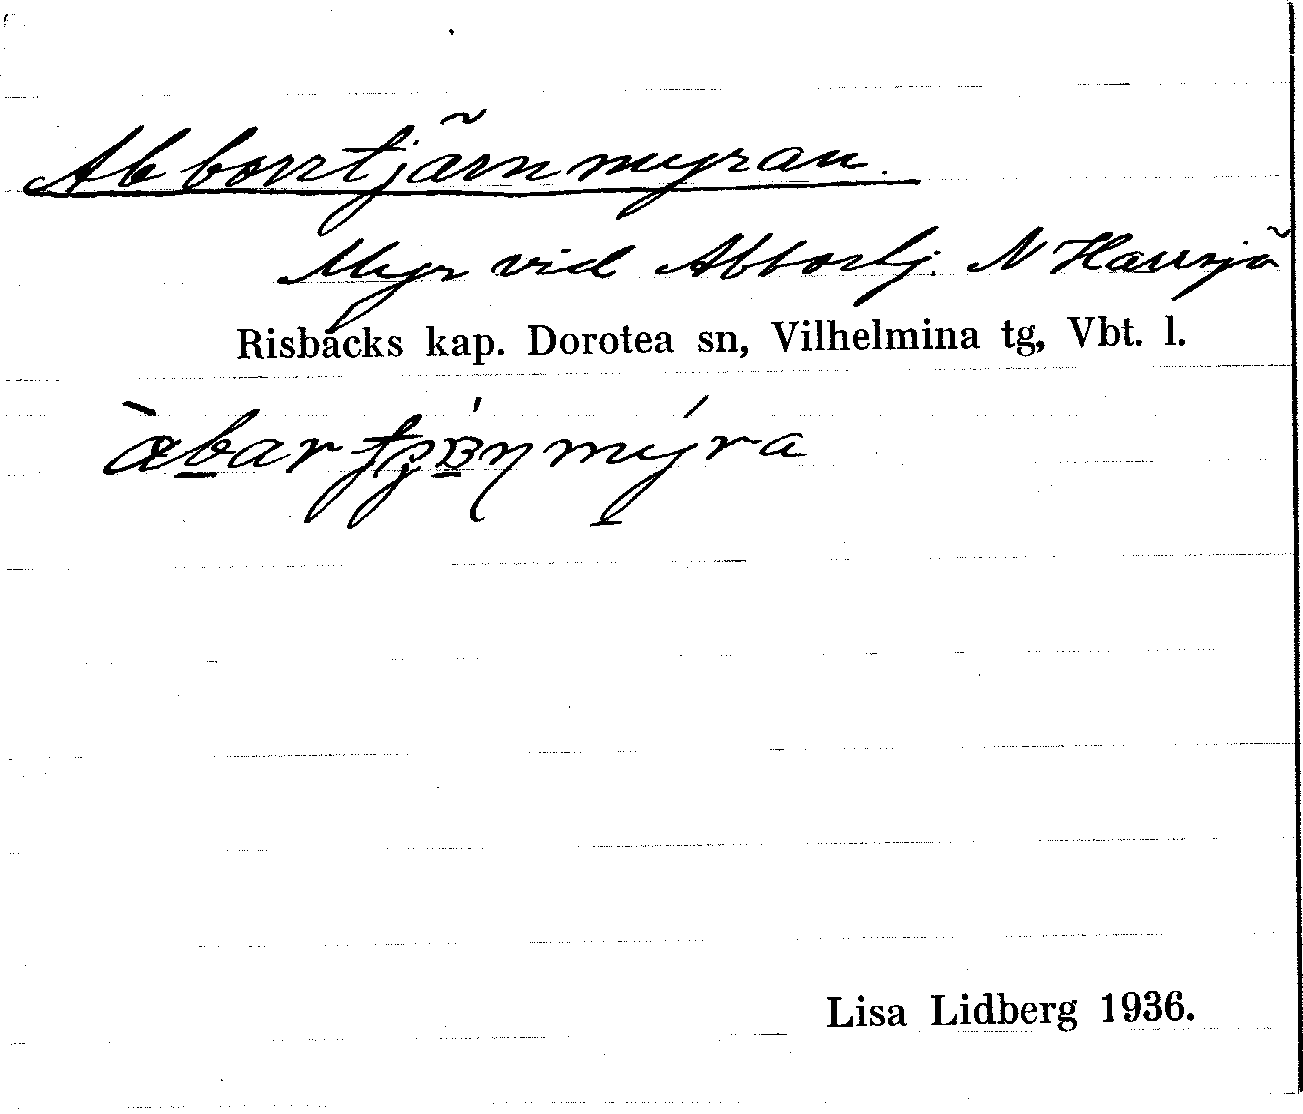 Abborrtjärnmyran.
Myr vid Abbortj. N Hansjö
Risbäcks kap. Dorotea sn, Vilhelmina tg, Vbt. l.
Lisa Lidberg 1936.